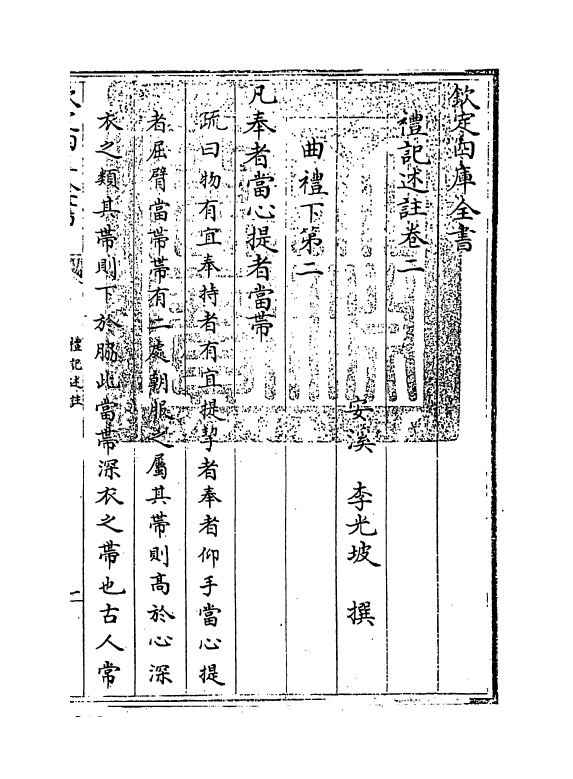 欽定四庫全書
禮記述註卷二
安溪 李光坡 撰
曲禮下第二
凡奉者當心提者當帶
疏曰物有宜奉持者有宜提挈者奉者仰手當心提
者屈臂當帶帶有二處朝服之屬其帶則高於心深
衣之類其帶則下於脇此當帶深衣之帶也古人常
禮記述註
一